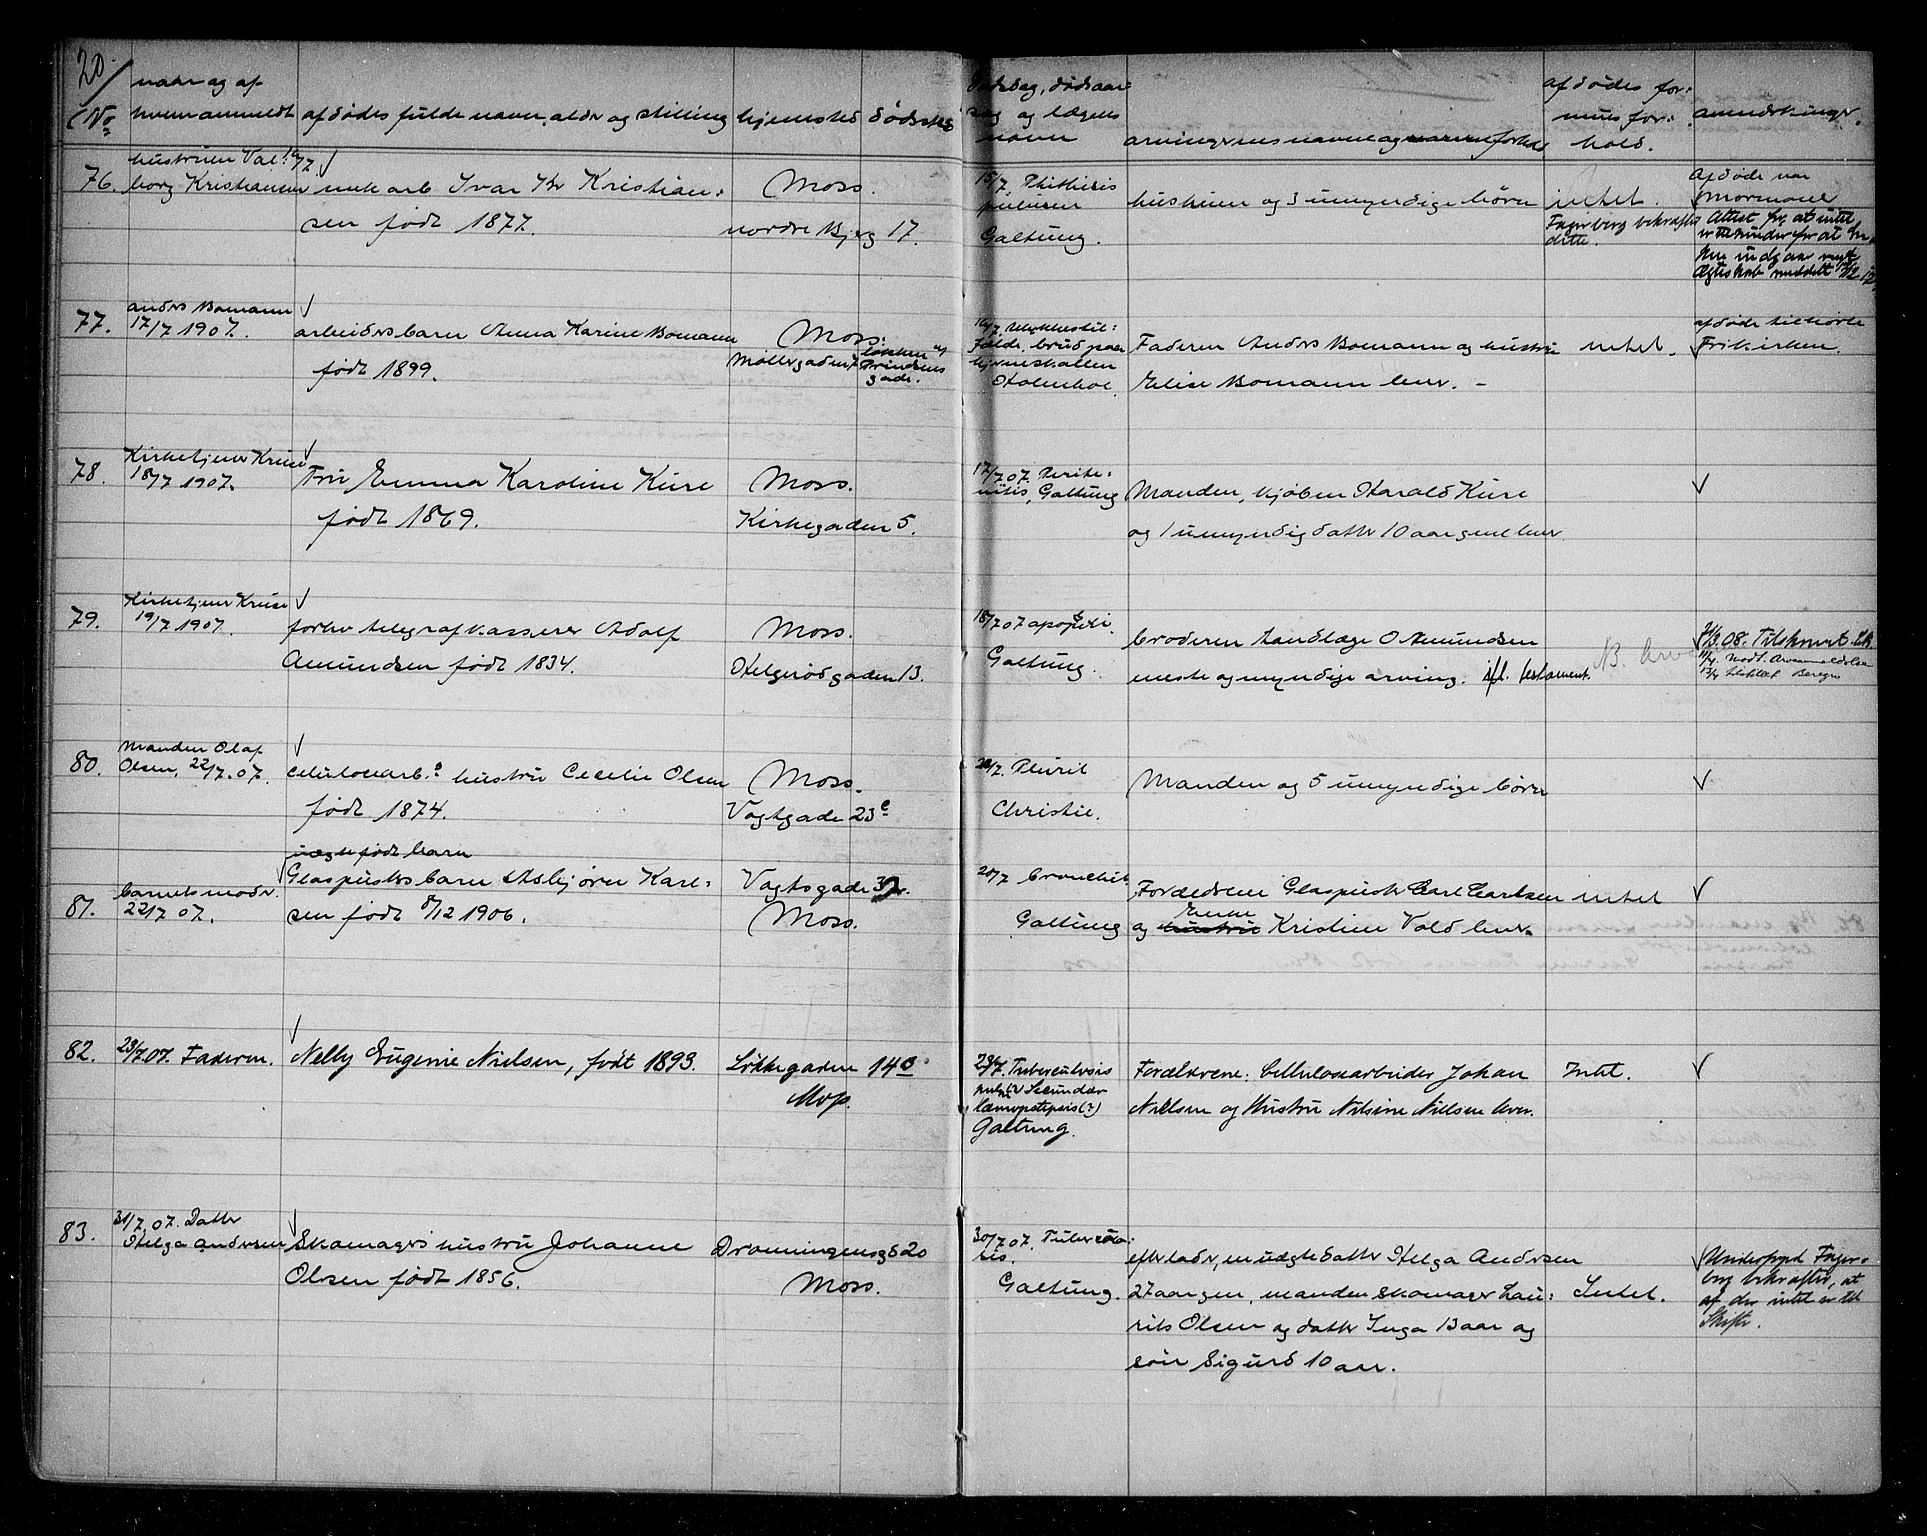 20
No
naar og af
hvem anmeldt
afdødes fulde navn, alder og stilling
hjemsted
dødssted
dødsdag, dødsaar:
sag og lægens
navn
arvingernes navne og forhold
afdødes for:
mues for:
hold.
anmerkninger.
76.
hustruen Val:
borg Kristiansen
murarb Ivar Kr Kristian:
sen født 1877.
Moss.
nordre Bjerg 17.
15/7. Phthisis
pulmon
Galtung.
hustruen og 3 umyndige børn
intet.
Fagerberg bekræfter
dette.
Afdøde var
mormoner
Attest for, at intet
er til hinder for at
indgaa nyt
Ægteskab meddelt
77.
anders Bomann
17/7 1907.
arbeidersbarn Anna Karine Bomann
født 1899.
Moss.
Møllergaden 7
Prindsens
gade.
16/7. Ulykkestil:
fælde, brud paa
hjerneskallen
Holmboe.
Faderen Anders Bomann og hustru
Elise Bomann lever. –
intet.
afdøde tilhørte
Frikirken.
78.
Kirketjener Kruse
18/7 1907.
Fru Emma Karoline Kure
født 1869.
Moss.
Kirkegaden 5.
17/7 07. Perito:
nitis, Galtung
Manden, kjøbm Harald Kure
og 1 umyndig datter 10 aar gml lever
79.
Kirketjener Kruse
19/7 1907.
forhv telegrafkasserer Adolf
Amundsen født 1834.
Moss.
Helgerødgaden 13.
18/7 07 apoplexi
Galtung.
broderen tandlæge O Amundsen
eneste og myndige arving. ifl. testament.
NB. Arv
08. Tilskrevet
11/4. Modt. Arveanmeldelse
80.
Manden Olaf
Olsen, 22/7.07.
celulosearb.s hustru Cecelie Olsen
født 1874.
Moss.
Vogtgade 23c
20/7. Plurit
Christie.
Manden og 5 umyndige børn
81.
barnets moder.
22/7 07.
uægte født barn
Glaspusters barn Asbjørn Karl:
sen født 8/12 1906.
Vogtsgade 32.
Moss.
20/7 bronchit
Galtung
Forældrene Glaspuster Carl Carlsen
og hustru Enke Kristine Vold lever.
intet
82.
23/7.07. Faderen.
Nelly Eugenie Nielsen, født 1893.
Løkkegaden 14c
Moss.
23/7. Tuberculosis
pulm(?) Secundær
hæmoptysis(?)
Galtung.
Forældrene: Cellulosearbeider Johan
Nielsen og Hustru Nilsine Nielsen lever.
Intet.
83.
31/7.07. Datter
Helga Andersen
Skomagers hustru Johanne
Olsen født 1856.
Dronningensgd 20
Moss.
30/7 07. Tubercolo:
sis.
Galtung.
efterlader, en uægte datter Helga Andersen
27 aar gm, manden skomager Lau:
rits Olsen og datter Inga 13 aar og
søn Sigurd 10 aar.
Intet.
Underfoged Fager-
berg bekræfter, at
af der intet er til
Skifte.